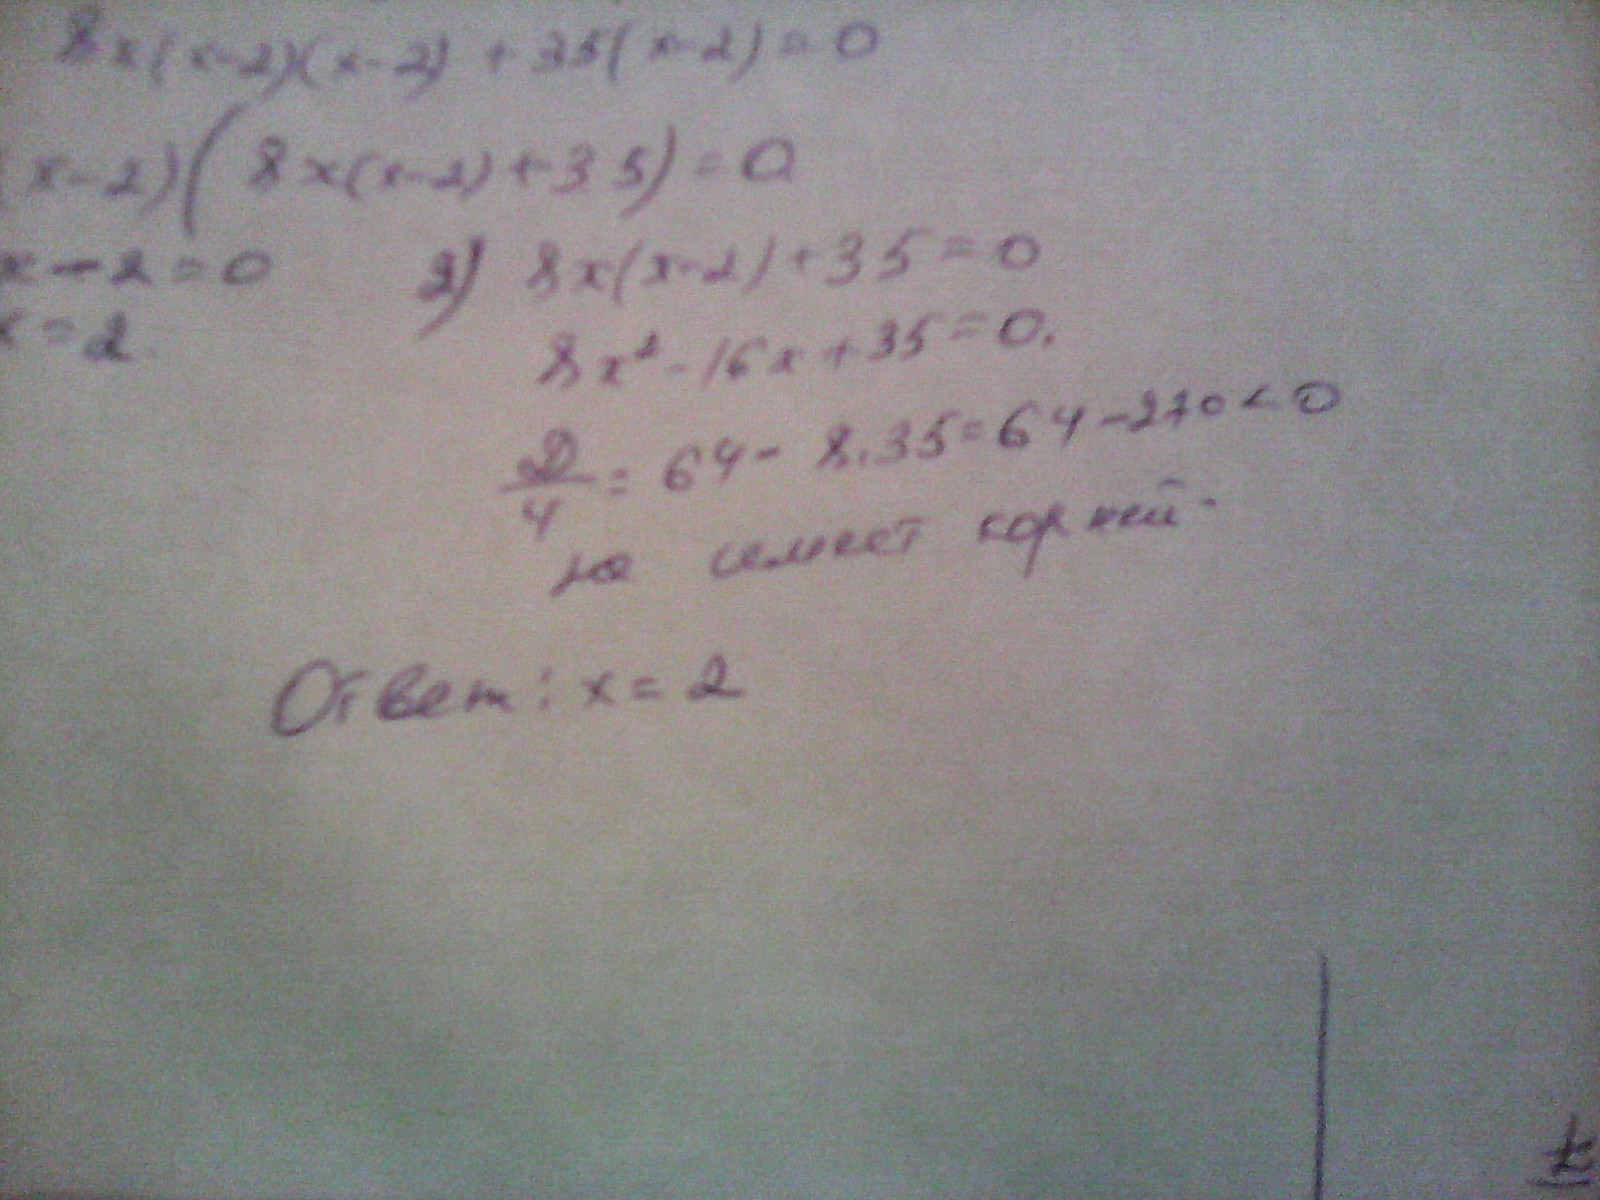 8x(x-2)(x-2) + 35(x-2) = 0
x-2)(8x(x-2)+35) = 0
x-2=0 2) 8x(x-2)+35=0
x=2. 8x²-16x+35=0.
D/4 = 64 - 8.35 = 64-270<0
корней.
Ответ: x=2